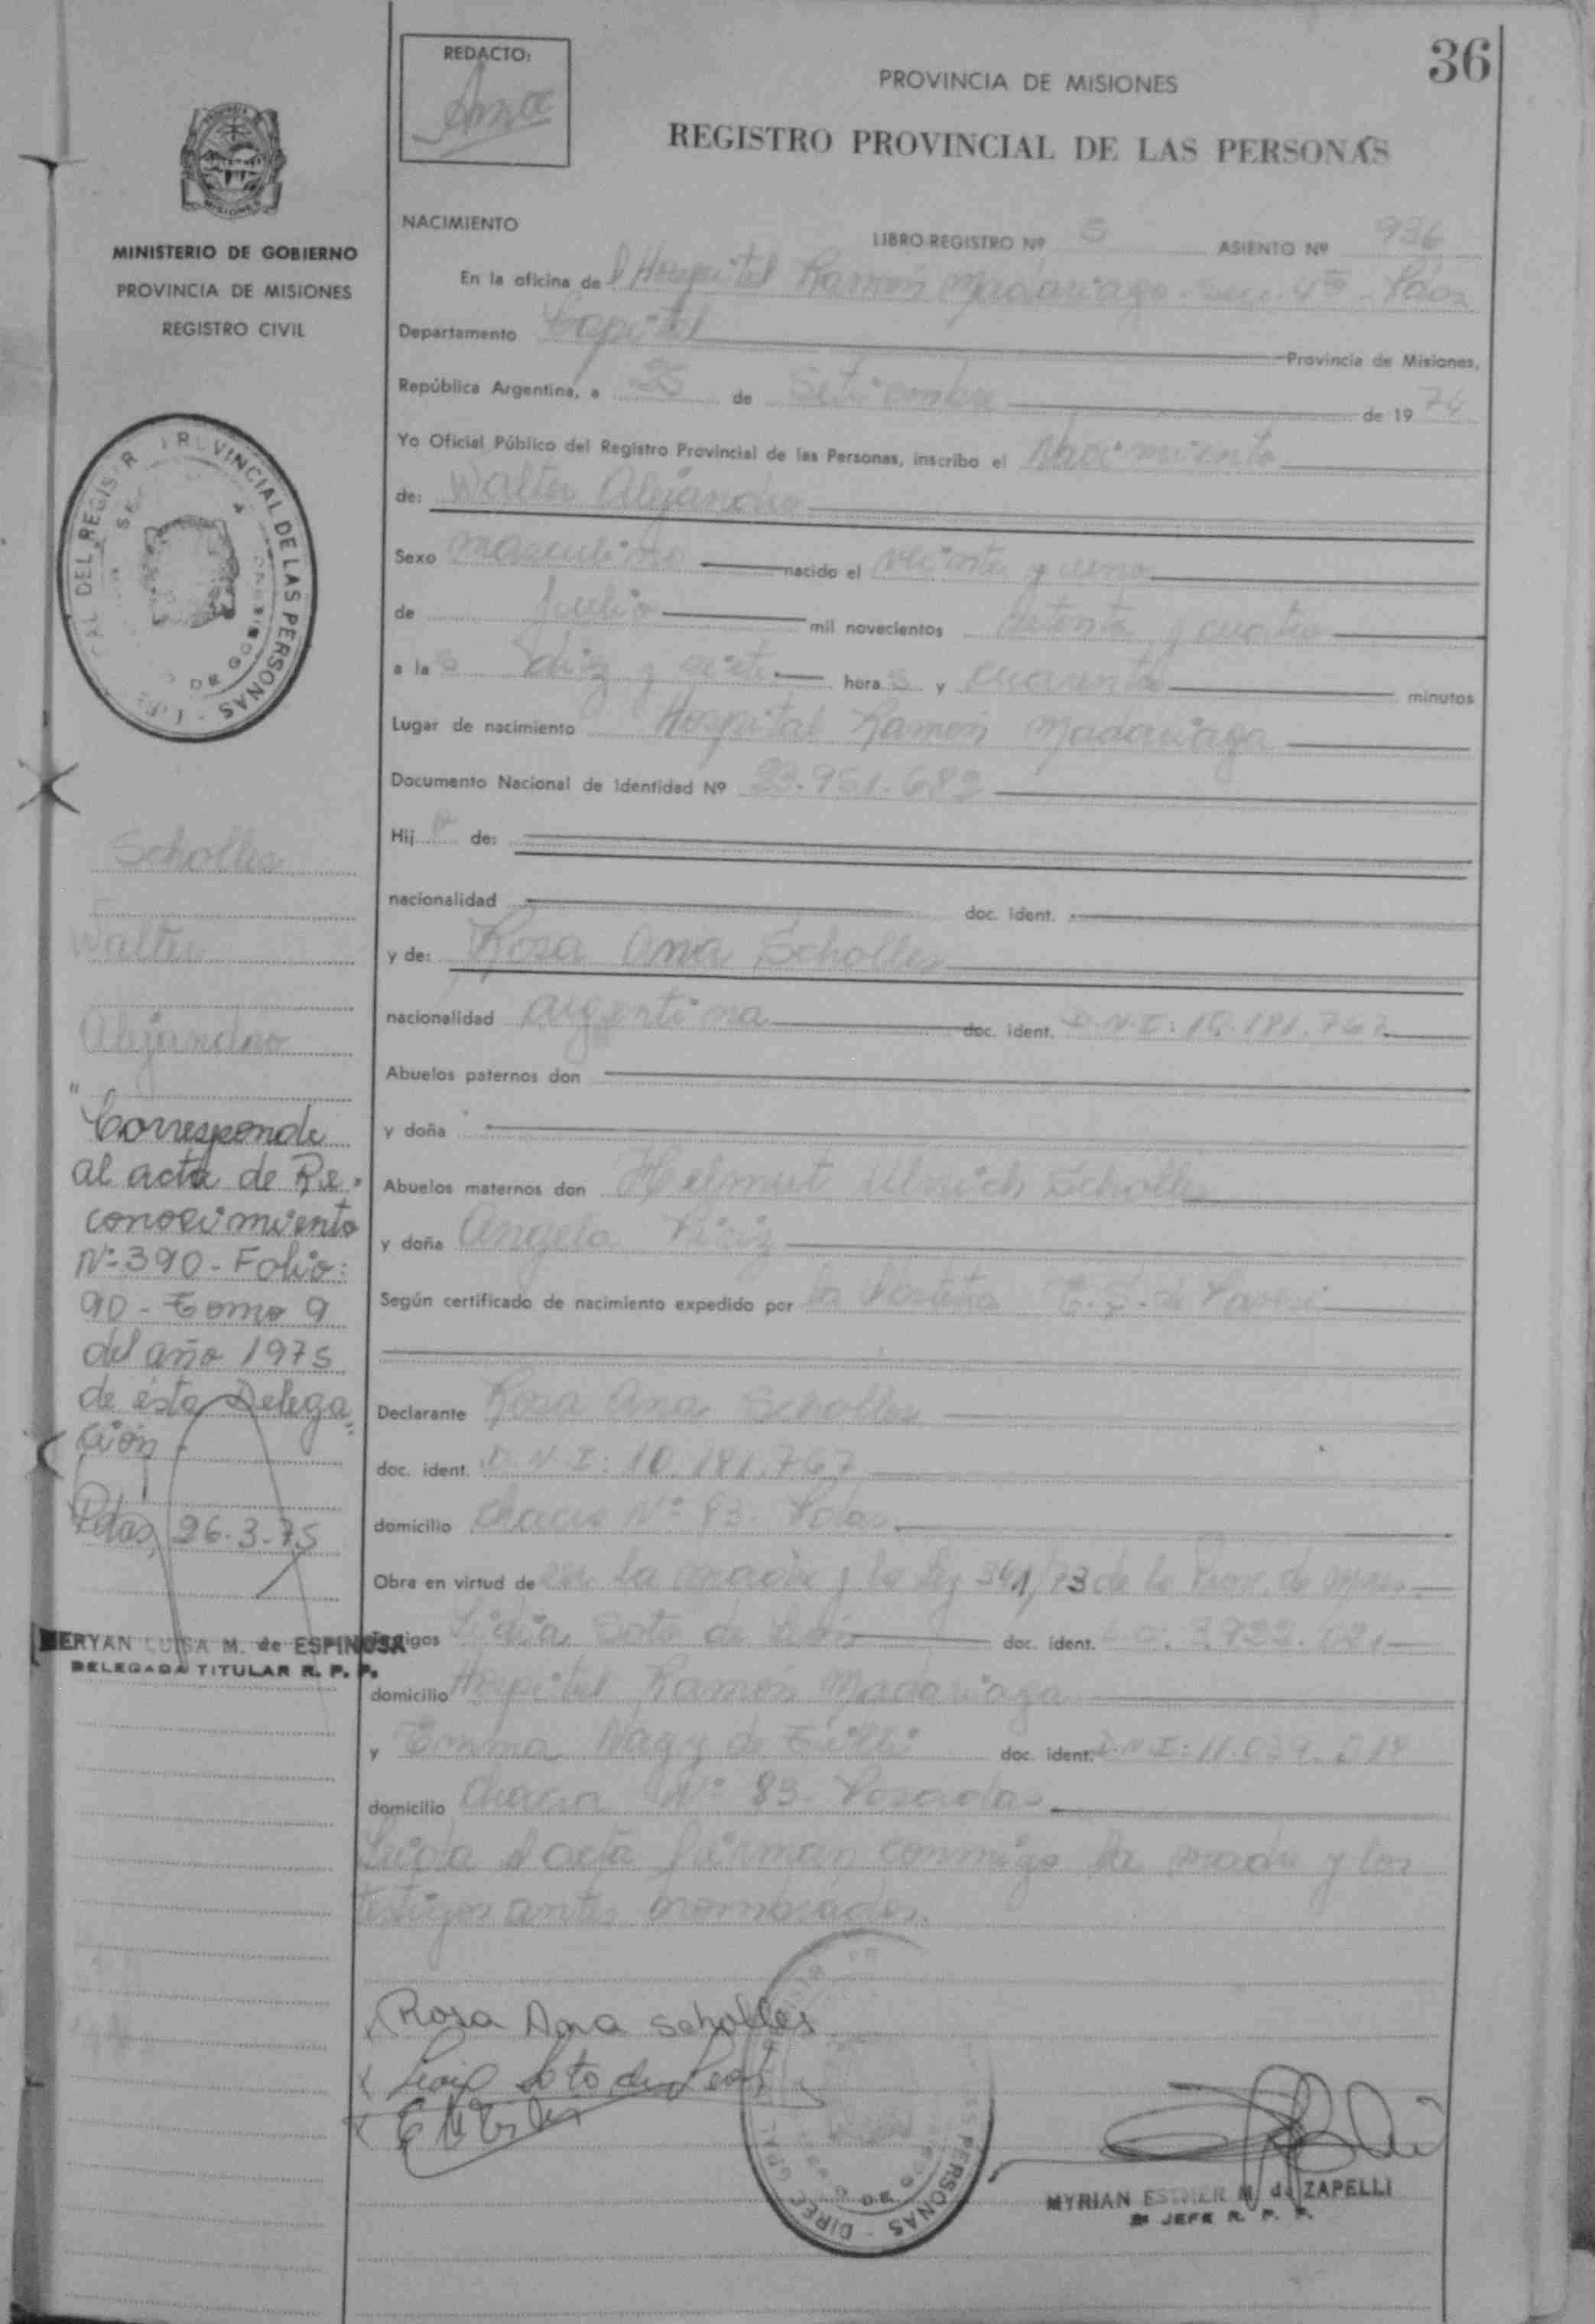 36
REDACTO:
Ana
PROVINCIA DE MISIONES
REGISTRO PROVINCIAL DE LAS PERSONAS
MINISTERIO DE GOBIERNO
PROVINCIA DE MISIONES
REGISTRO CIVIL
NACIMIENTO
LIBRO REGISTRO Nº 5 ASIENTO Nº 936
En la oficina del Hospital Ramón Madariaga - Secc. 4ta - Pdas
Departamento Capital Provincia de Misiones,
República Argentina, a 25 de Setiembre de 1974
Yo Oficial Público del Registro Provincial de las Personas, inscribo el Nacimiento
de: Walter Alejandro
Sexo masculino nacido el veinte y uno
de Julio mil novecientos setenta y cuatro
a las diez y siete horas y cuarenta minutos
Lugar de nacimiento Hospital Ramón Madariaga
Documento Nacional de Identidad Nº 23.951.682
Hijo de:
nacionalidad doc. ident.
y de: Rosa Ana Scholles
nacionalidad argentina doc. ident. D.N.I: 10.181.767
Abuelos paternos don
y doña
Abuelos maternos don Helmut Ulrich Scholles
y doña Angela
Según certificado de nacimiento expedido por la Partera
Declarante Rosa Ana Scholles
doc. ident. D.N.I: 10.181.767
domicilio chacra Nº 83. Pdas
Obra en virtud de ser la madre y la Ley 341/73 de la Prov. de Mnes.
Testigos Lidia Soto de León doc. ident. 3.922.081
domicilio Hospital Ramón Madariaga
y Emma Nagy de doc. ident. D.N.I: 11.039.
domicilio Chacra Nº 83. Posadas
Leida el acta firman conmigo la madre y los
testigos antes nombrados.
Rosa Ana Scholles
Soto de León
MYRIAN ESTHER M. de ZAPELLI
2º JEFE R. P. P.
Scholles
Walter
Alejandro
"Corresponde
al acta de Re-
conocimiento
Nº 390 - Folio:
90 - Tomo 9
del año 1975
de ésta Delega-
ción -
Pdas, 26.3.75
MERYAN LUISA M. de ESPINOSA
DELEGADA TITULAR R. P. P.
PROVINCIAL DE LAS PERSONAS
PERSONAS - DIREC